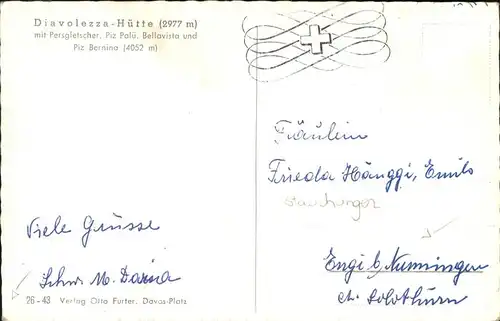 Diavolezza-Hütte (2977 m)
mit Persgletscher, Piz Palü, Bellavista und
Piz Bernina (4052 m)
Fräulein
Frieda Hänggi, Emils
Engi b. Nunningen
Ct. Solothurn
Viele Grüsse
Schw. M. Daria
26-43 Verlag Otto Furter, Davos-Platz